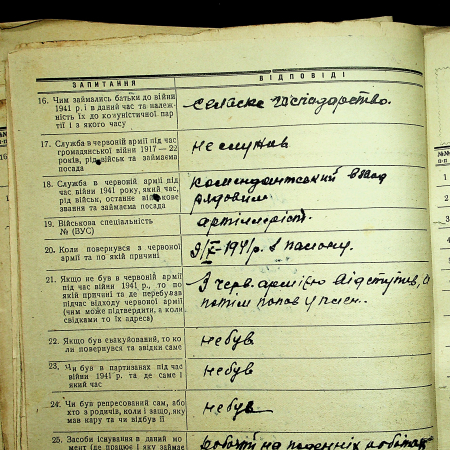 ЗАПИТАННЯ
ВІДПОВІДІ
16. Чим займались батьки до війни
1941 р. і в даний час та належ-
ність їх до комуністичної пар-
тії і з якого часу
сельське господарство.
17. Служба в червоній армії під час
громадянської війни 1917 — 22
років, рід військ та займаєма
посада
не служив
18. Служба в червоній армії під
час війни 1941 року, який час,
рід військ, останнє військове
звання та займаєма посада
комендантський взвод
рядовим
19. Військова спеціальність
№ (ВУС)
артилерист.
20. Коли повернувся з червоної
армії та по якій причині
9/X-1941 р. з полону.
21. Якщо не був в червоній армії
під час війни 1941 р., то по
якій причині та де перебував
підчас відходу червоної армії
(чим може підтвердити, а коли
свідками то їх адреса)
З черв. армією відступив, а
потім попав у плен.
22. Якщо був евакуйований, то ко-
ли повернувся та відкіля саме
не був
23. Чи був в партизанах під час
війни 1941 р. та де саме і
який час
не був
24. Чи був репресований сам, або
хто з родичів, коли і защо, яку
мав кару та чи відбув її
не був
25. Засоби існування в даний мо-
мент (де працює і яку займає